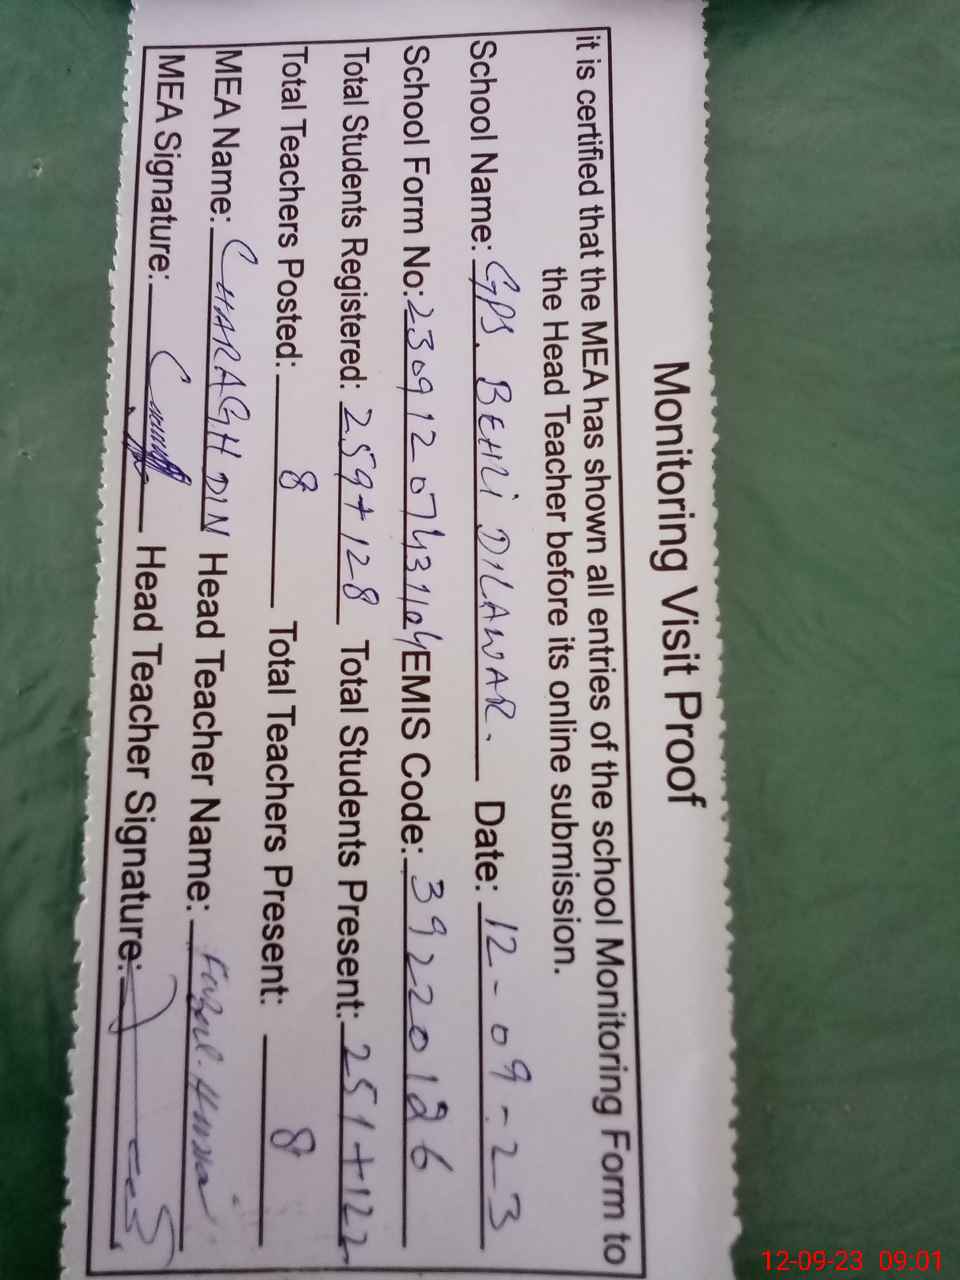 Monitoring Visit Proof
it is certified that the MEA has shown all entries of the school Monitoring Form to
the Head Teacher before its online submission.
School Name: GPS. BEHRI DILAWAR. Date: 12-09-23
School Form No: EMIS Code: 39220126
Total Students Registered: 259+128 Total Students Present: 251+122
Total Teachers Posted: 8 Total Teachers Present: 8
MEA Name: CHARAGH DIN Head Teacher Name:
MEA Signature: Head Teacher Signature:
12-09-23 09:01